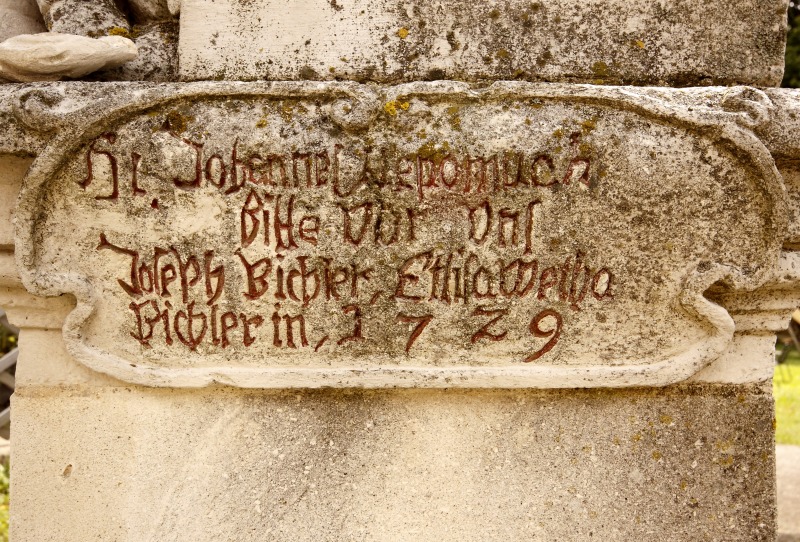 Hl. Johannes Nepomuch
Bitte Vür Uns
Joseph Bichler, Ellisawetha
Bichlerin, 1729